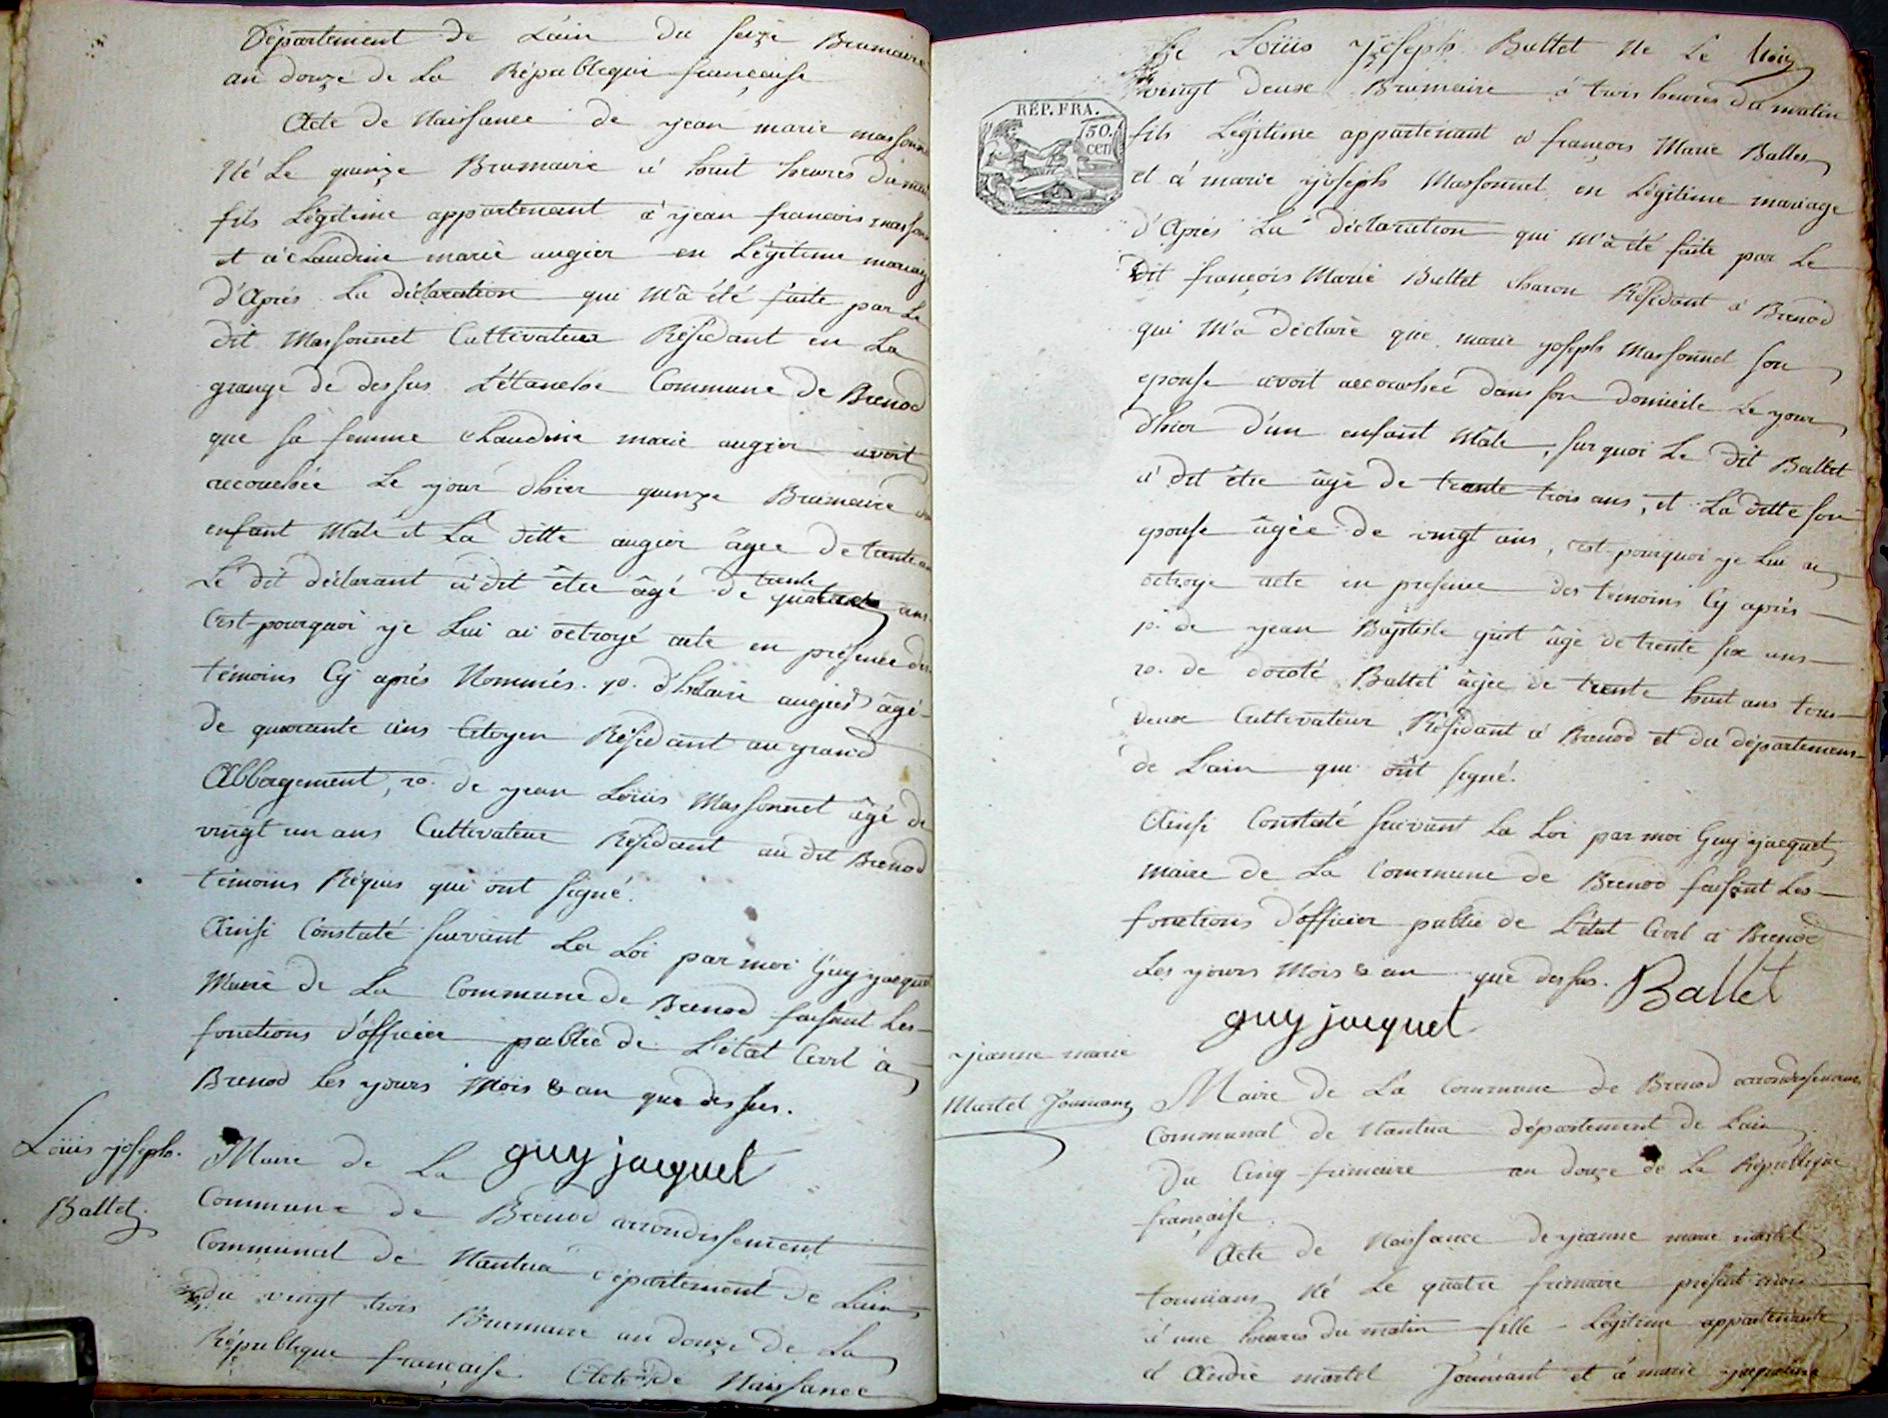 Département de Lain du seize Brumaire
an douze de La République française
Acte de Naissance de yean marie massonn
Né Le quinze Brumaire a huit heures du mat
fils Légitime appartenant à yean francois massonn
et à claudine marie augier en Légitime mariage
d'après La déclaration qui m'a été faite par Le
dit Massonnet Cultivateur Résidant en La
grange de dessus L'étanche Commune de Brenod
que sa femme claudine marie augier avoit
accouchée Le your d'hier quinze Brumaire
enfant Male et La ditte augier âgée de trente
Le dit déclarant à dit être âgé de trente ans
C'est-pourquoi ye Lui ai octroyé acte en présence des
témoins Cy après Nommés. 1o. d'hilaire augier âgé
de quarante ans Citoyen Résidant au grand
Abbergement, 2o. de yean Loüis Massonnet âgé de
vingt un ans Cultivateur Résidant au dit Brenod
témoins Réquis qui ont signé.
Ainsi Constaté suivant La Loi par moi Guy yacquet
Maire de La Commune de Brenod faisant Les
fonctions d'officier public de L'état Civil à
Brenod Les yours Mois & an que dessus.
guy jacquet
Loüis yoseph
Ballet
Maire de La
Commune de Brenod arrondissement
Communal de Nantua département de Lain
du vingt trois Brumaire an douze de La
République française Acte de Naissance
de Loüis yoseph Ballet Né Le
vingt deux Brumaire à trois heures du matin
RÉP. FRA.
50.
cen
fils Légitime appartenant à françois Marie Ballet
et à marie yoseph Massonnet en Légitime mariage
d'Après La déclaration qui M'a été faite par Le
Dit françois Marie Ballet charon Résidant à Brenod
qui M'a déclaré que marie yoseph Massonnet son
epouse avoit accouchée dans son domicile Le your
d'hier d'un enfant Male, sur quoi Le dit Ballet
à dit être âgé de trente trois ans, et La ditte son
epouse âgée de vingt ans, c'est-pourquoi ye Lui ai
octroye acte en presence des témoins Cy après
1o. de yean Baptiste âgé de trente six ans
2o. de doroté Ballet âgée de trente huit ans tous
deux Cultivateur Résidant à Brenod et du département
de Lain qui ont signé.
Ainsi Constaté suivant La Loi par moi Guy yacquet
maire de La Commune de Brenod faisant Les
fonctions d'officier public de L'état Civil à Brenod
Les yours Mois & an que dessus. Ballet
guy jacquet
yeanne marie
Martel
Maire de La Commune de Brenod arrondissement
Communal de Nantua département de Lain
Du Cinq frimaire an douze de La République
française.
Acte de Naissance de yeanne marie martel
Né Le quatre frimaire présent mois
à une heures du matin fille Légitime appartenante
à André martel et à marie